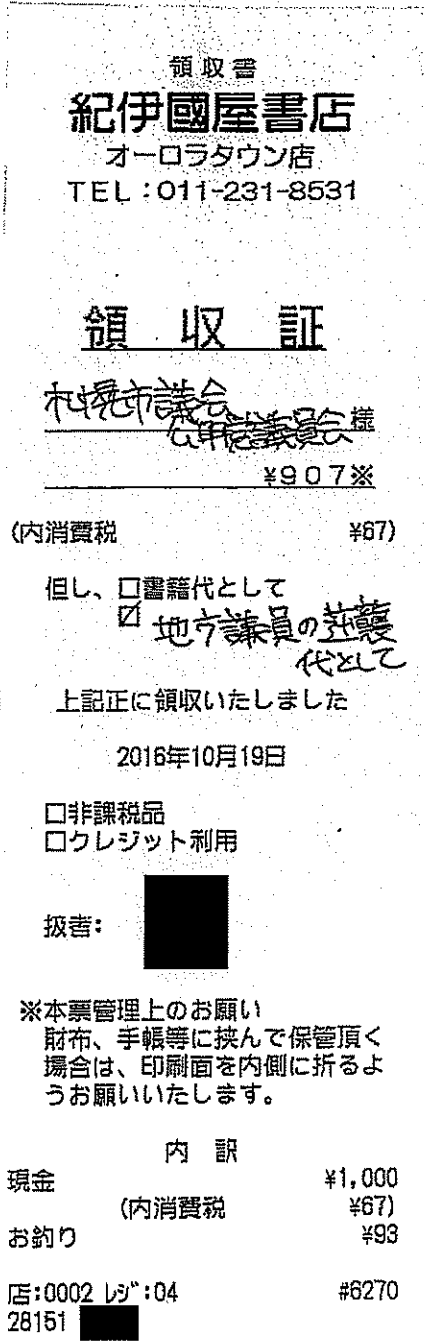 領収書
紀伊國屋書店
オーロラタウン店
TEL:011-231-8531
領 収 証
札幌市議会
公明党議員会様
¥907※
(内消費税 ¥67)
但し、□書籍代として
☑ 地方議員の逆襲
代として
上記正に領収いたしました
2016年10月19日
□非課税品
□クレジット利用
扱者:
※本票管理上のお願い
財布、手帳等に挟んで保管頂く
場合は、印刷面を内側に折るよ
うお願いいたします。
内 訳
現金 ¥1,000
(内消費税 ¥67)
お釣り ¥93
店:0002 レジ:04 #6270
28151